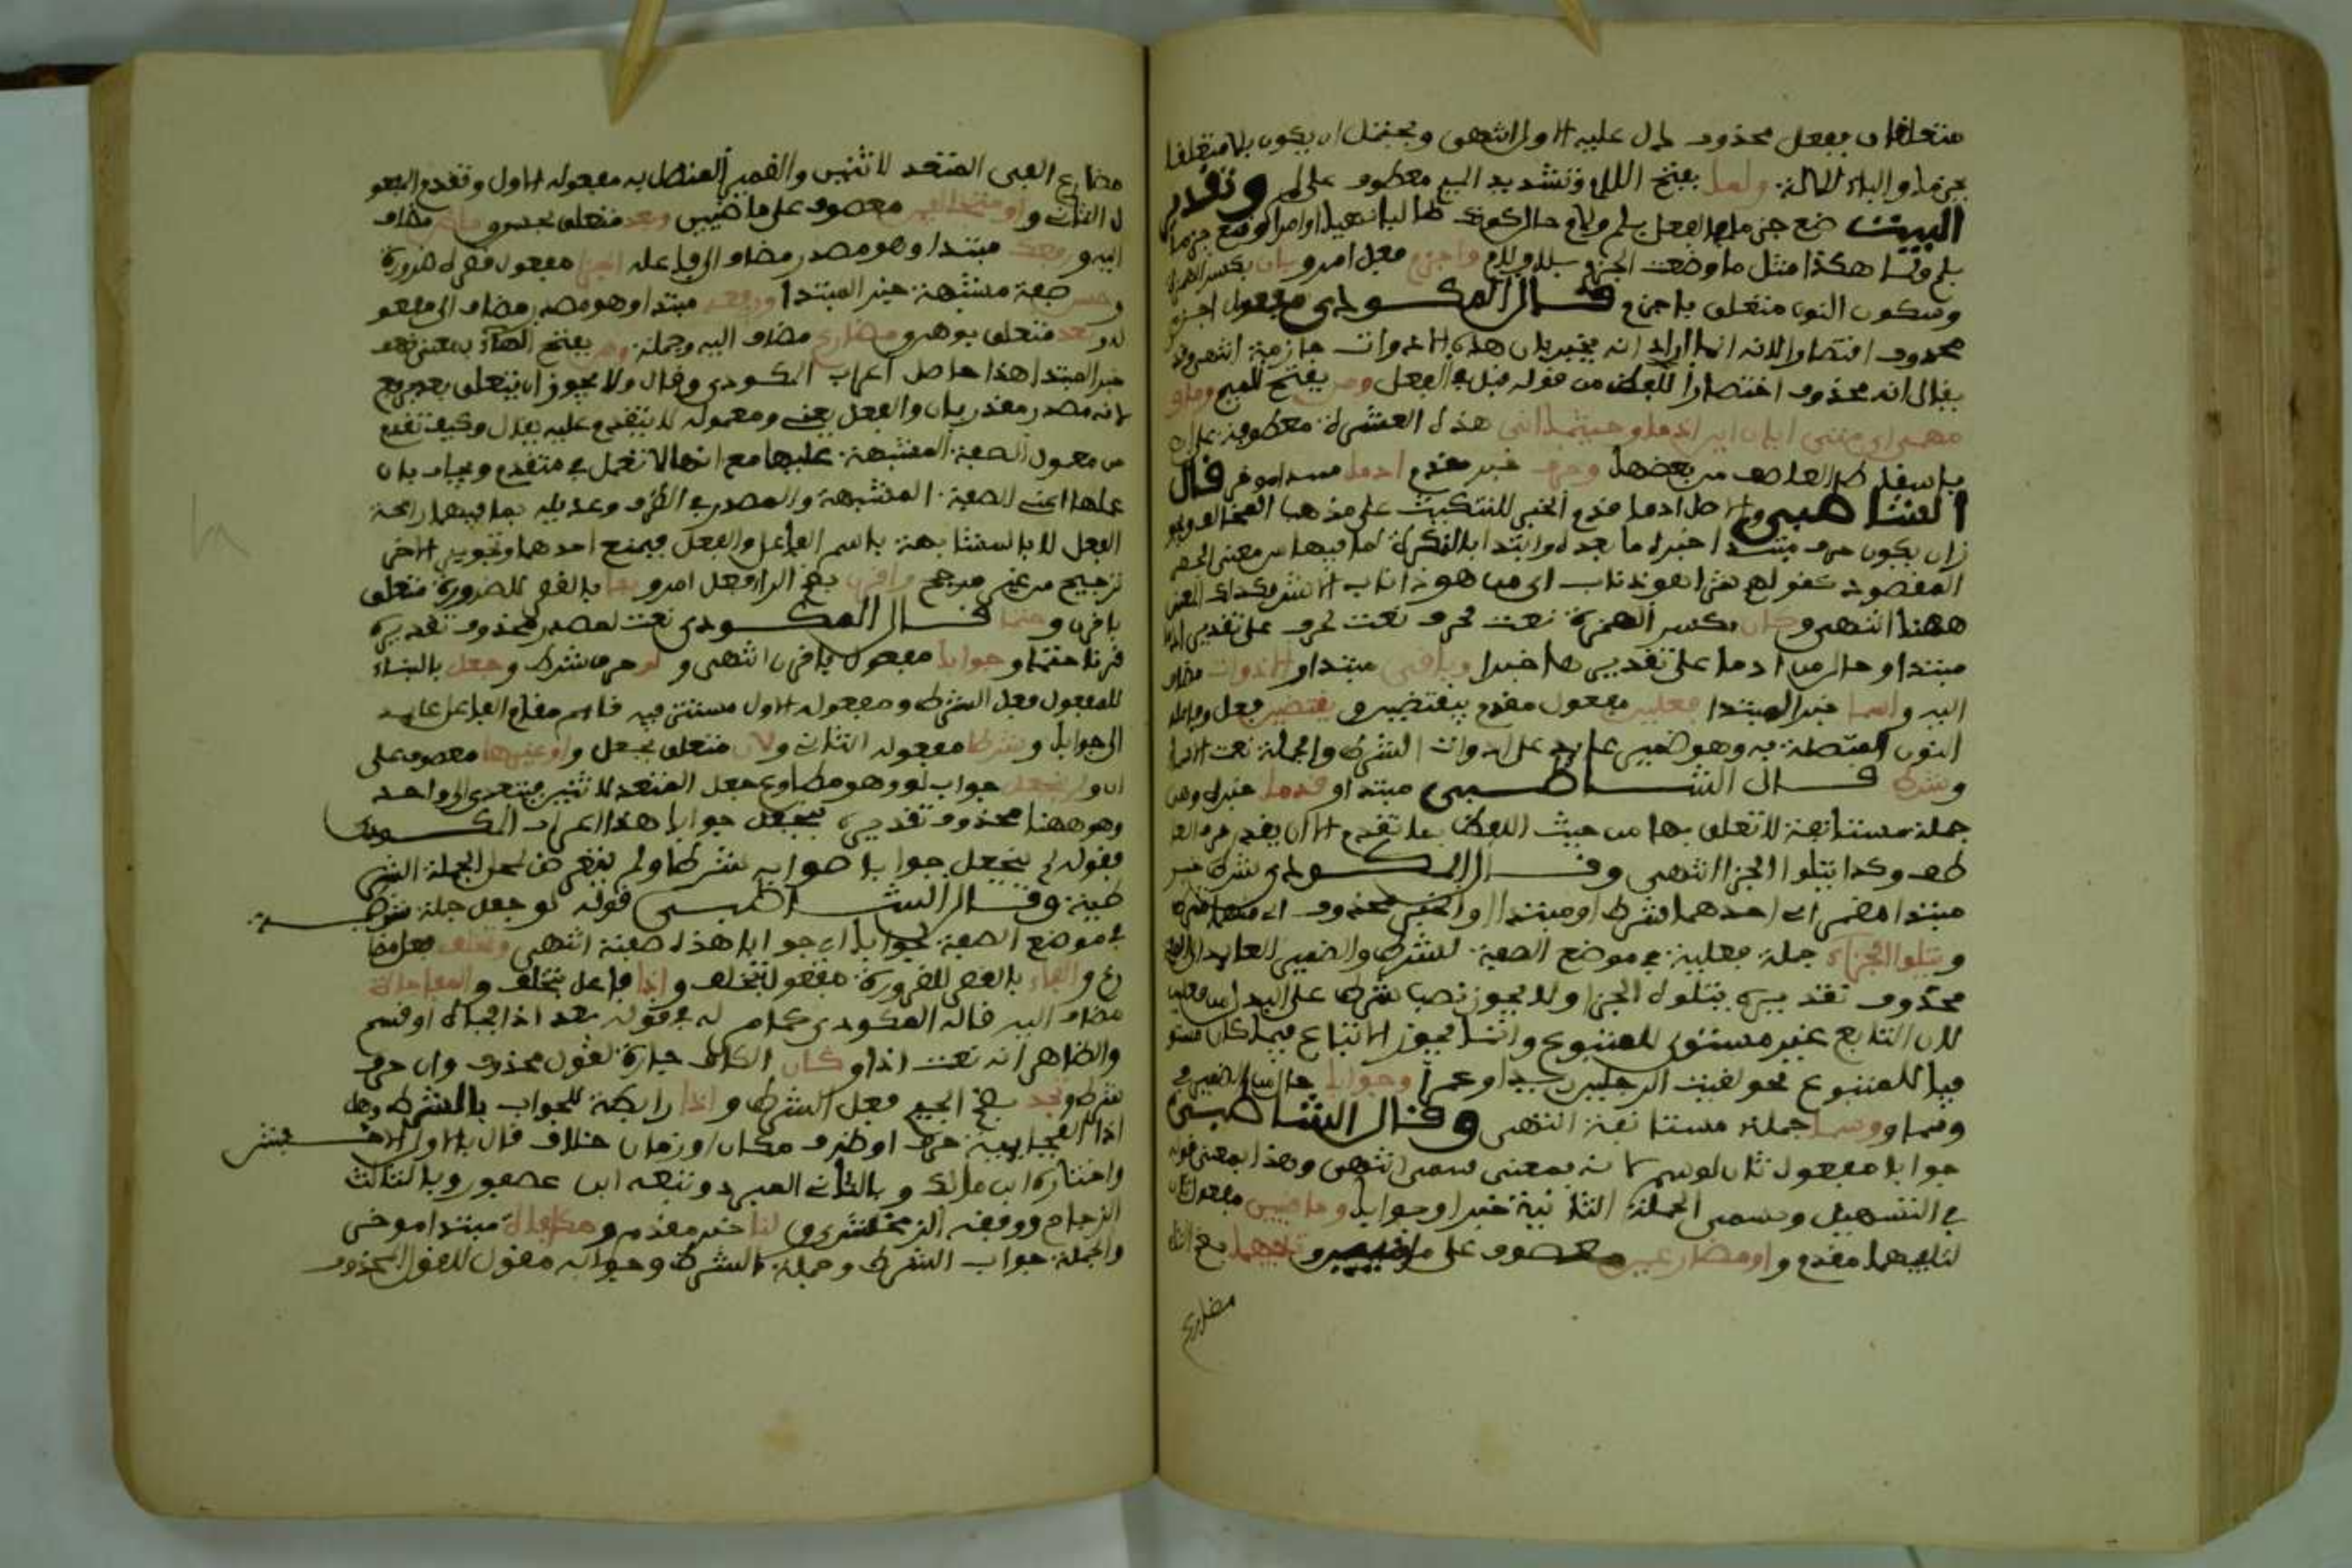 متعلقان بفعل محذوف دل عليه الاول انتهى ويحتمل ان يكون بلا متعلقا
بجزما والباء للالة ولما بفتح اللام وتشديد الميم معطوف على لم وتقدير
البيت ضع جزما في الفعل بلم ولام حال كونك طالبا ناهيا او امرا وضع جزما
بلم ولما هكذا مثل ما وضعت الجزم بلا ولام واجزم فعل امر وبان بكسر الهمزة
وسكون النون متعلق باجزم قال المكودي ومفعول اجزم
محذوف اقتصارا لانه انما اراد انه يخبر بان هذه الادوات جازمة انتهى وقد
يقال انه محذوف اختصارا للعلم من قوله قبل في الفعل ومن بفتح الميم وما و
مهمى اي متى ايان اين اذما وحيثما انى هذه العشرة معطوفة على ان
باسقاط العاطف من بعضها وحرف خبر مقدم اذما مبتدا موخر قال
الشاطبي والاصل اذما قدم الخبر للتنكيت على مذهب المخالف ويجو
ز ان يكون حرف مبتدا خبره ما بعده وابتدا بالنكرة لما فيها من معنى الحصر
المقصود كقولهم شر اهر ذا ناب اي ما اهر ذا ناب الا شر فكذلك المعنى
ههنا انتهى وكان بكسر الهمزة نعت لحرف نعت لحرف على تقدير اذما
مبتدا وحال من اذما على تقديرها خبرا وباقي مبتدا و الادوات مضاف
اليه واسما خبر المبتدا فعلين مفعول مقدم بيقتضين و يقتضين فعل وفاعله
النون المتصلة به وهو ضمير عايد على ادوات الشرط والجملة نعت اسما
وشرط قال الشاطبي مبتدا و قدما خبره وهي
جملة مستانفة لا تعلق لها من حيث اللفظ بما تقدم الا ان يقدر حرف العا
طف وكذا يتلوا الجزا انتهى وقال المكودي شرط خبر
مبتدا مضمر اي احدهما شرط او مبتدا والخبر محذوف اي منهما شرط
ويتلوا الجزاء جملة فعلية في موضع الصفة لشرط والضمير العايد الى
محذوف تقديره يتلوه الجزا ولا يجوز نصب شرط على البدل من فعلين
لان التابع غير مستوف للمتبوع وانما يجوز الاتباع فيما كان مستو
فيا للمتبوع نحو لقيت الرجلين زيدا وعمرا وجوابا حال من الضمير في
وسما و وسما جملة مستانفة انتهى وقال الشاطبي
جوابا مفعول ثان لوسم لانه بمعنى سمى انتهى وهذا بمعنى قوله
في التسهيل وتسمى الجملة الثانية جزا وجوابا وماضيين مفعول ثان
لتلفيهما مقدم و او مضارعين معطوف على ماضيين و تلفيهما بضم التاء
مضارع
مضارع الفى المتعد لاثنين والضمير المتصل به مفعوله الاول وتقدم المفعو
ل الثاني و او متخالفين معطوف على ماضيين وبعد متعلق بحسن و ماض مضاف
اليه ورفعك مبتدا وهو مصدر مضاف الى فاعله الجزا مفعول قصره ضرورة
وحسن صفة مشبهة خبر المبتدا ورفعه مبتدا وهو مصدر مضاف الى مفعو
له وبعد متعلق بوهن ومضارع مضاف اليه وجملة وهن بفتح الهاء بمعنى ضعف
خبر المبتدا هذا حاصل اعراب المكودي وقال ولا يجوز ان يتعلق بعد برفع
لانه مصدر مقدر بان والفعل يعني ومعموله لا يتقدم عليه يقال وكيف تقدم
معمول الصفة المشبهة عليها مع انها لا تعمل في متقدم ويجاب بان
عملها اعني الصفة المشبهة والمصدر في الظرف وعديله بما فيهما رائحة
الفعل لا بالمشابهة باسم الفاعل والفعل فيمنع احدهما وتجويز الاخر
ترجيح من غير مرجح واقرن بضم الرا فعل امر و بفا بالقصر للضرورة متعلق
باقرن وحتما قال المكودي نعت لمصدر محذوف تقديره
قرنا حتما وجوابا مفعول باقرن انتهى و لو حرف شرط وجعل بالبناء
للمفعول فعل الشرط ومفعوله الاول مستتر فيه قايم مقام الفاعل عايد
الى جوابا وشرطا مفعوله الثاني ولان متعلق بجعل و او غيرها معطوف على
ان ولم ينجعل جواب لو وهو مطاوع جعل المتعد لاثنين فيتعدى الى واحد
وهو ههنا محذوف تقديره ينجعل جوابا هذا اعراب المكودي
فقوله لم ينجعل جوابا صوابه شرطا ولم يتعرض لمحل الجملة الشر
طية وقال الشاطبي قوله لو جعل جملة شرطية
في موضع الصفة لجوابا اي جوابا هذه صفته انتهى وتخلف فعل مضا
رع و الفاء بالقصر للضرورة مفعول تخلف و اذا فاعل تخلف و المفاجاة
مضاف اليه قاله المكودي كما مر له في قوله بعد اذا فجاة او قسم
والظاهر انه نعت اذا و كان الكاف جارة لقول محذوف وان حرف
شرط وتجد بضم الجيم فعل الشرط و اذا رابطة للجواب بالشرط وهل
اذا الفجايية حرف او ظرف مكان او زمان خلاف قال بالاول الاخفش
واختاره ابن مالك وبالثاني المبرد وتبعه ابن عصفور وبالثالث
الزجاج ووافقه الزمخشري و لنا خبر مقدم و مكافاة مبتدا موخر
والجملة جواب الشرط وجملة الشرط وجوابه مقول للقول المحذوف